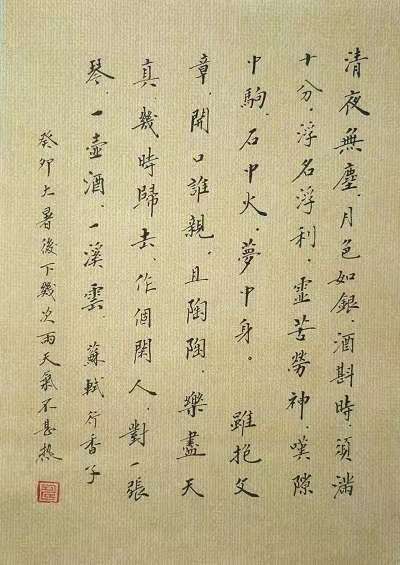 清夜無塵.月色如銀.酒斟時.須滿
十分.浮名浮利.虛苦勞神.嘆隙
中駒.石中火.夢中身。雖抱文
章.開口誰親.且陶陶.樂盡天
真.幾時歸去.作個閑人.對一張
琴.一壺酒.一溪雲.蘇軾行香子
癸卯大暑後下幾次雨天氣不甚熱